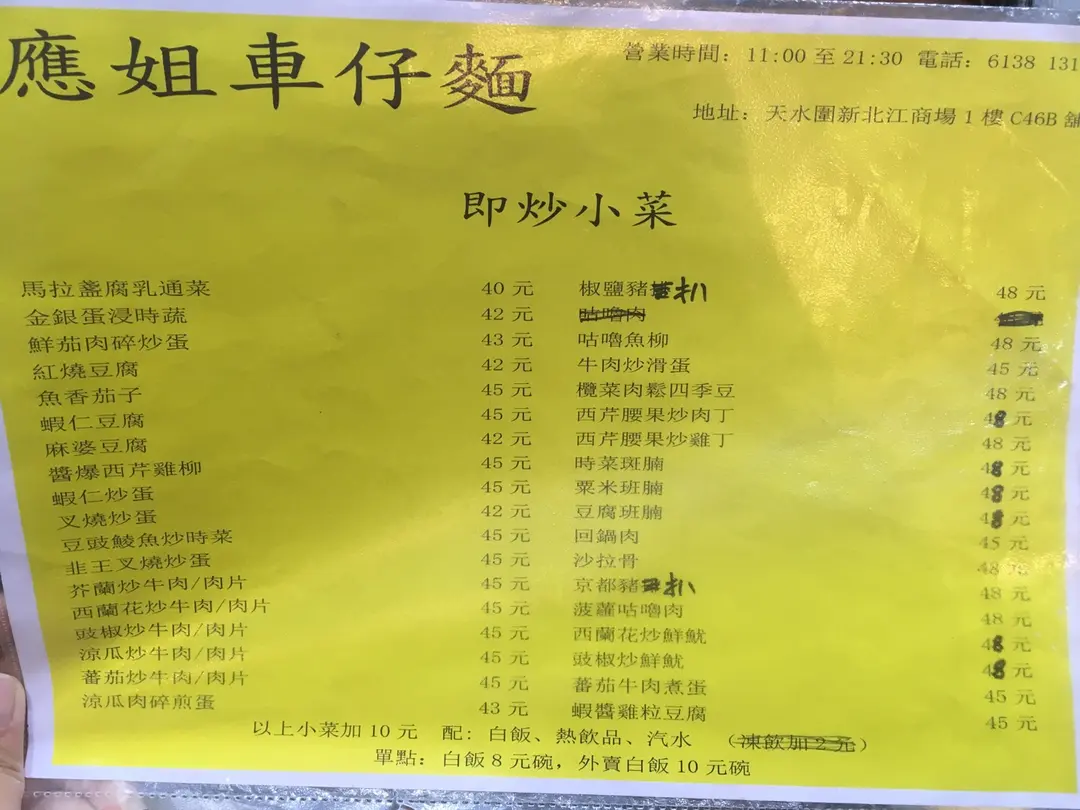 應姐車仔麵
營業時間：11:00 至 21:30 電話：6138 131
地址：天水圍新北江商場 1 樓 C46B 舖
即炒小菜
馬拉盞腐乳通菜 40 元
金銀蛋浸時蔬 42 元
鮮茄肉碎炒蛋 43 元
紅燒豆腐 42 元
魚香茄子 45 元
蝦仁豆腐 45 元
麻婆豆腐 42 元
醬爆西芹雞柳 45 元
蝦仁炒蛋 45 元
叉燒炒蛋 42 元
豆豉鯪魚炒時菜 45 元
韭王叉燒炒蛋 45 元
芥蘭炒牛肉/肉片 45 元
西蘭花炒牛肉/肉片 45 元
豉椒炒牛肉/肉片 45 元
涼瓜炒牛肉/肉片 45 元
蕃茄炒牛肉/肉片 45 元
涼瓜肉碎煎蛋 43 元
椒鹽豬扒 48 元
咕嚕肉
咕嚕魚柳 48 元
牛肉炒滑蛋 45 元
欖菜肉鬆四季豆 48 元
西芹腰果炒肉丁 48 元
西芹腰果炒雞丁 48 元
時菜斑腩 48 元
粟米班腩 48 元
豆腐班腩 48 元
回鍋肉 45 元
沙拉骨 48 元
京都豬扒 48 元
菠蘿咕嚕肉 48 元
西蘭花炒鮮魷 48 元
豉椒炒鮮魷 48 元
蕃茄牛肉煮蛋 45 元
蝦醬雞粒豆腐 45 元
以上小菜加 10 元 配：白飯、熱飲品、汽水 （凍飲加 2 元）
單點：白飯 8 元碗，外賣白飯 10 元碗